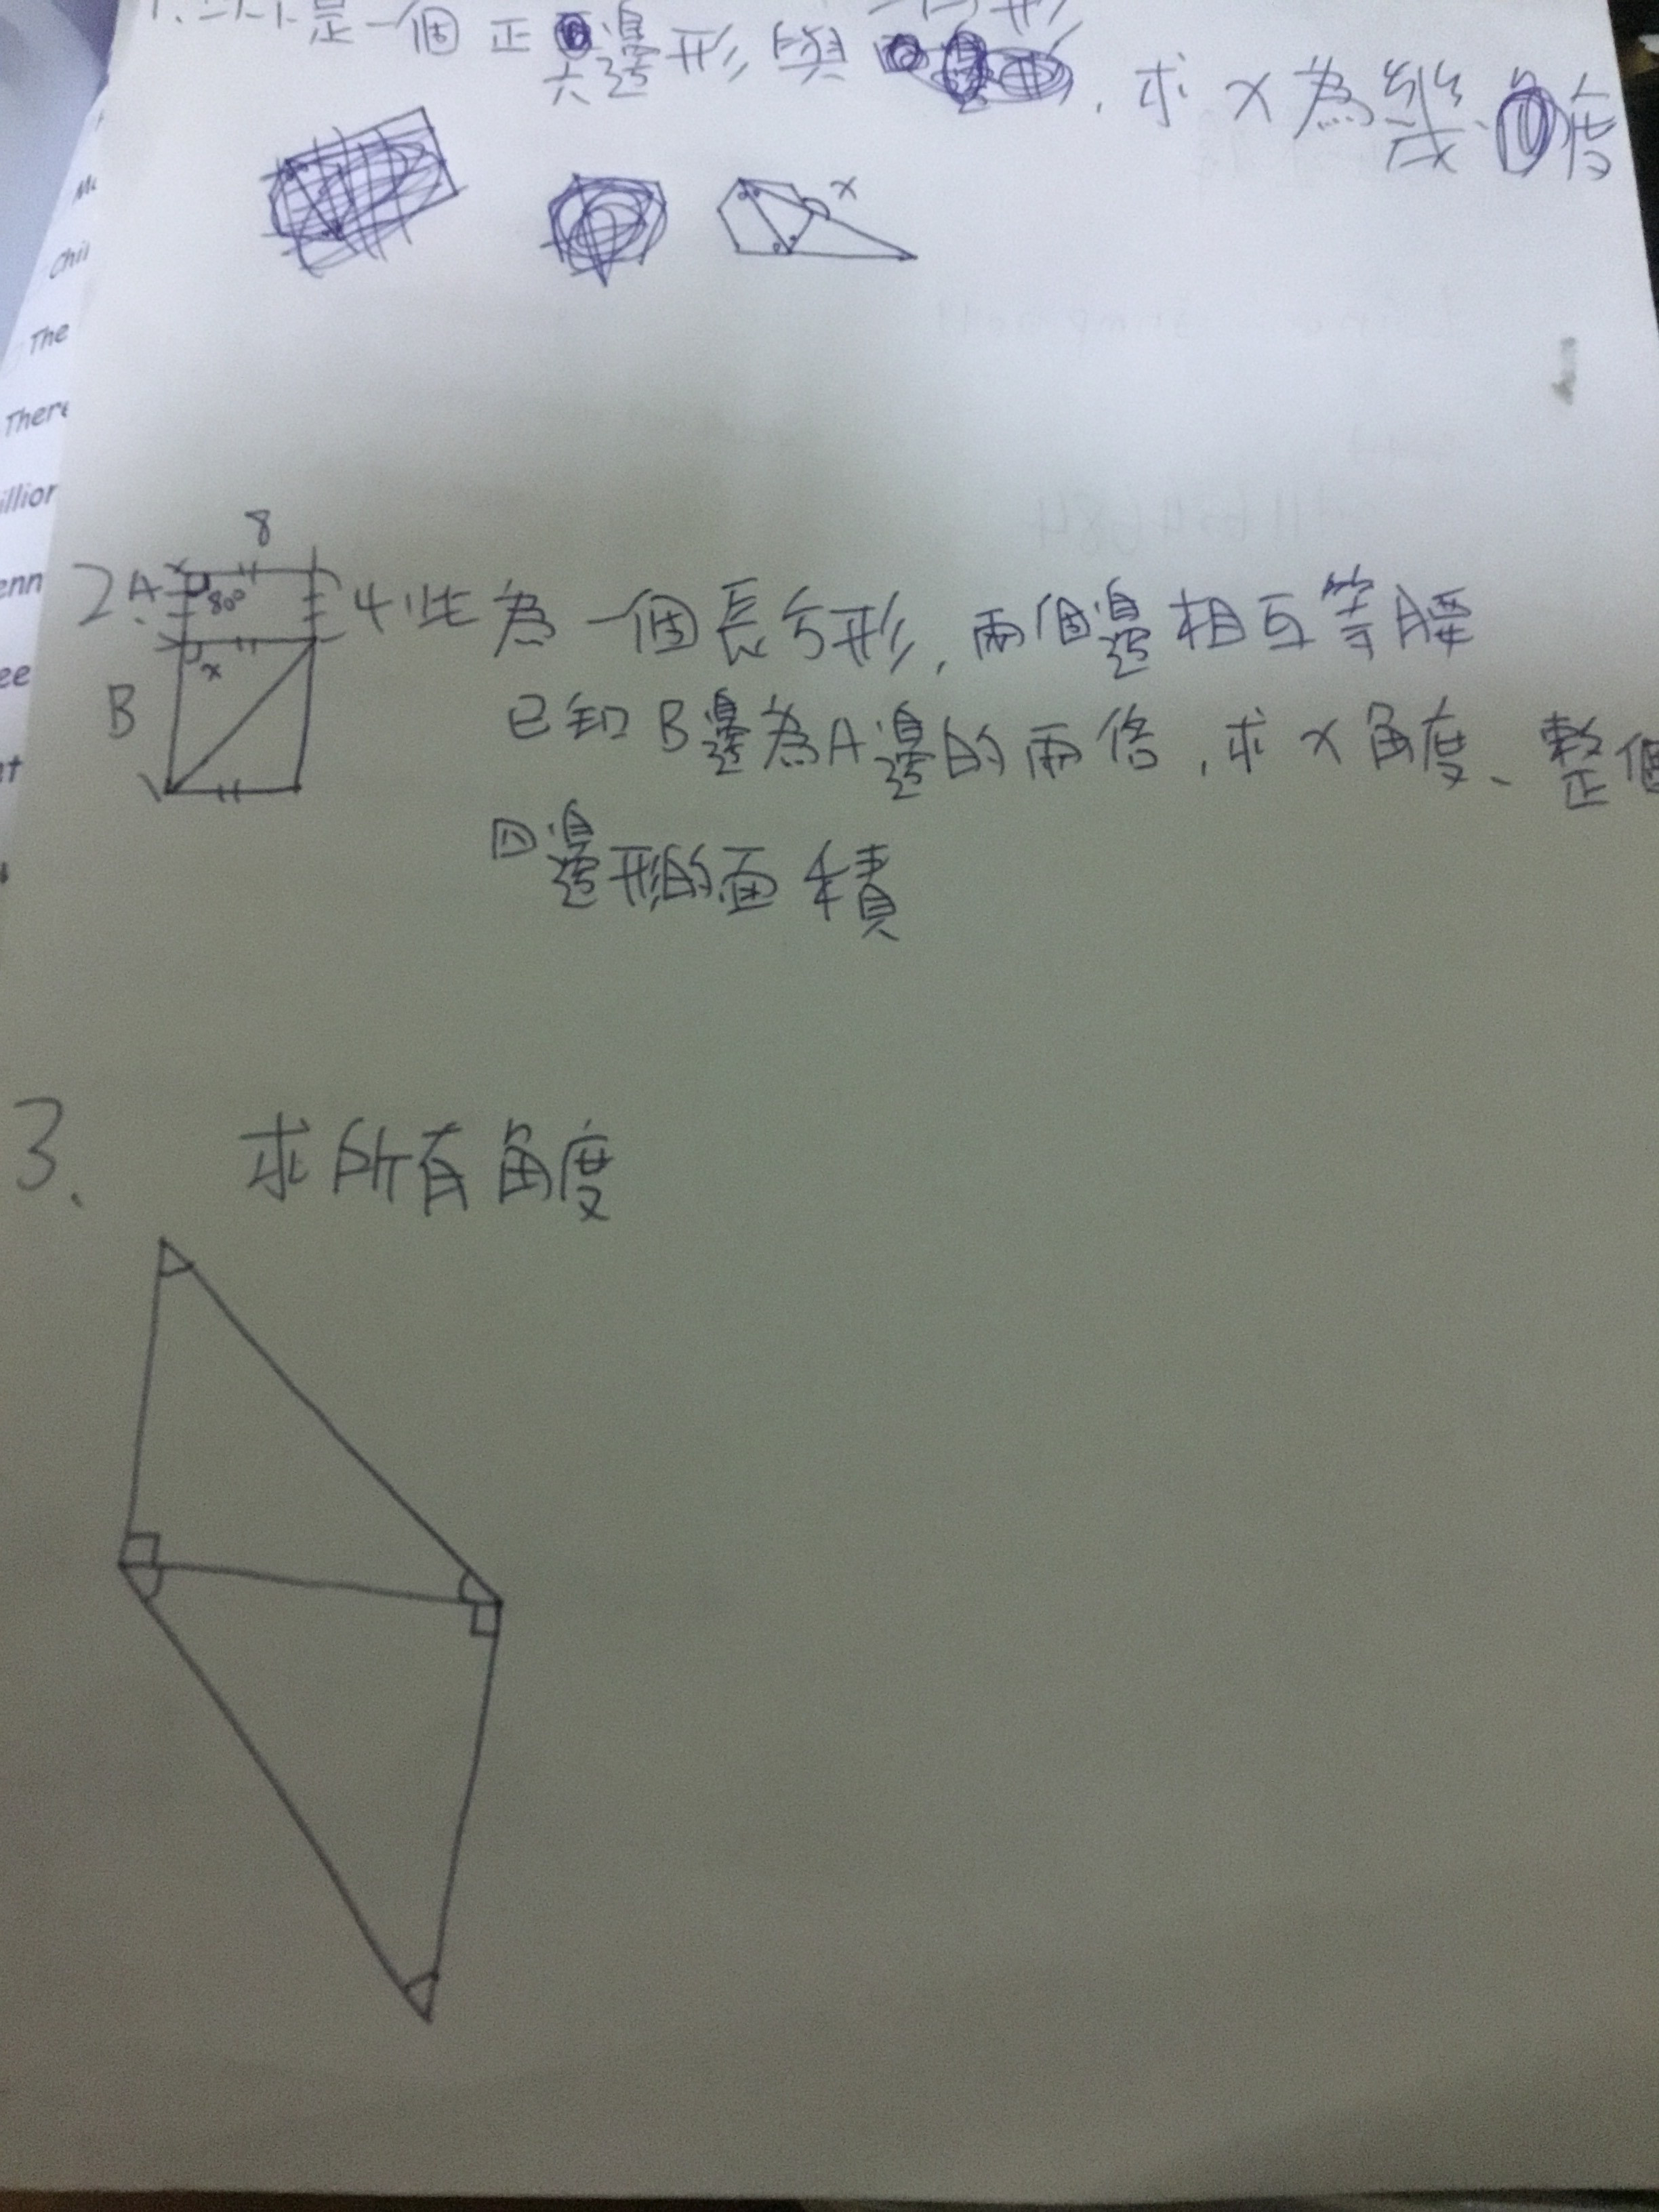 是一個正六邊形與
形
，求x為幾度
x
8
2、A 80° 4 此為一個長方形，兩個邊相互等腰
x
B 已知B邊為A邊的兩倍，求x角度、整個
四邊形的面積
3、求所有角度
Chil
The
There
illion
enn
ee